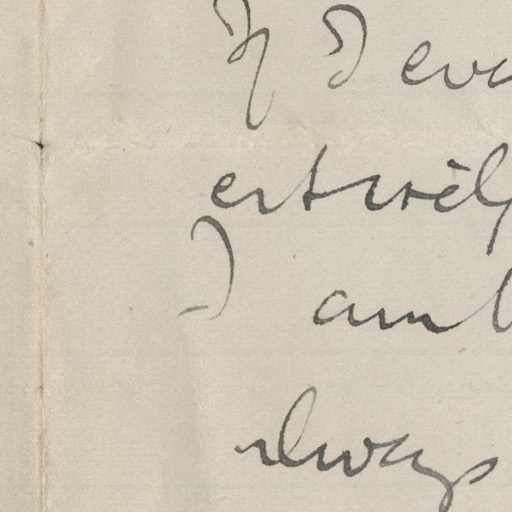 If I eve
entirely
I am
always